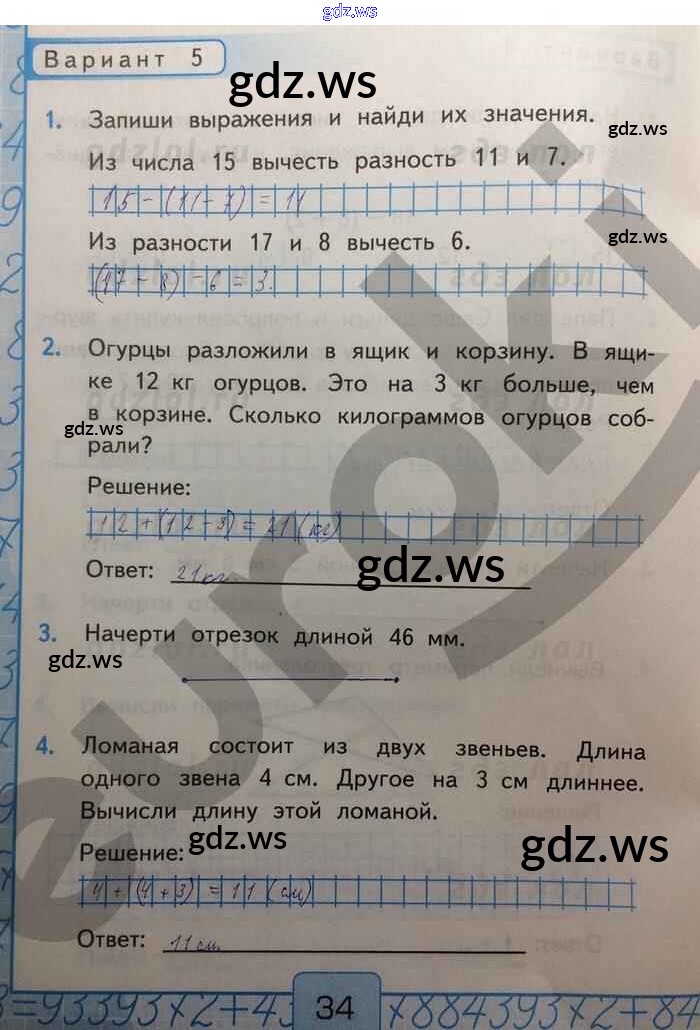 gdz.ws
Вариант 5
gdz.ws
1. Запиши выражения и найди их значения.
gdz.ws
Из числа 15 вычесть разность 11 и 7.
15-(11-7)=11
Из разности 17 и 8 вычесть 6.
gdz.ws
(17-8)-6=3.
2. Огурцы разложили в ящик и корзину. В ящи-
ке 12 кг огурцов. Это на 3 кг больше, чем
в корзине. Сколько килограммов огурцов соб-
gdz.ws
рали?
Решение:
12+(12-3)=21(кг)
Ответ: 21кг
gdz.ws
3. Начерти отрезок длиной 46 мм.
gdz.ws
4. Ломаная состоит из двух звеньев. Длина
одного звена 4 см. Другое на 3 см длиннее.
Вычисли длину этой ломаной.
gdz.ws
gdz.ws
Решение:
4+(4+3)=11(см)
Ответ: 11см.
34
euroki